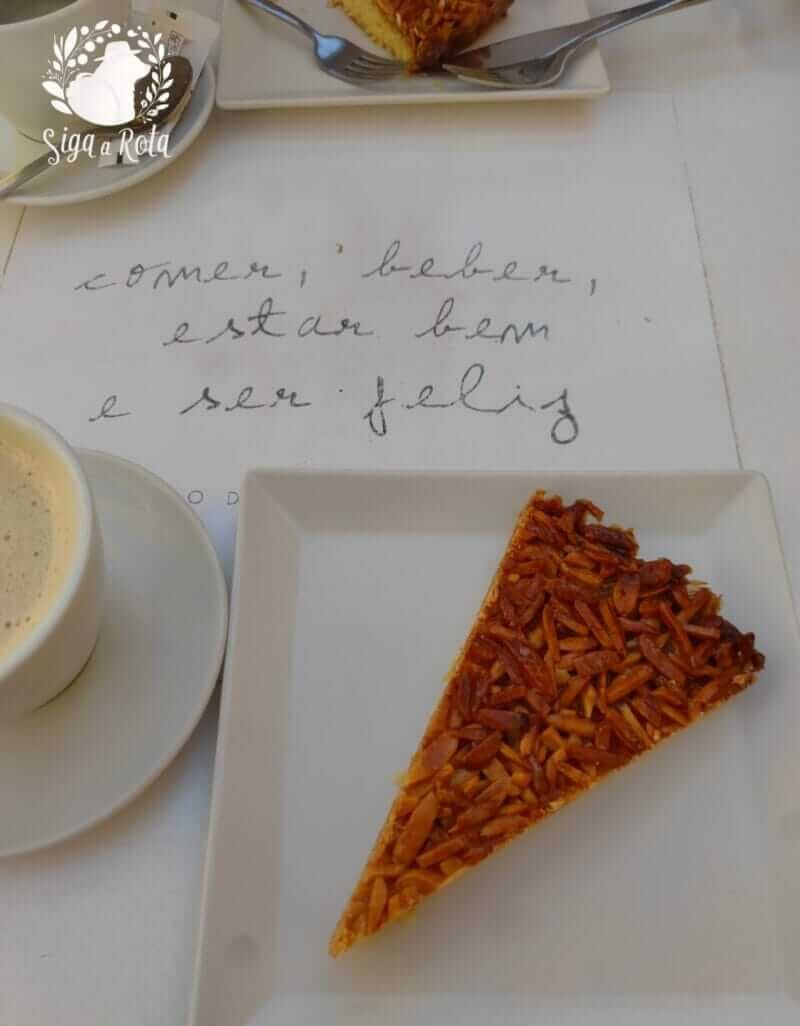 Siga a Rota
comer, beber,
estar bem
e ser feliz
O D